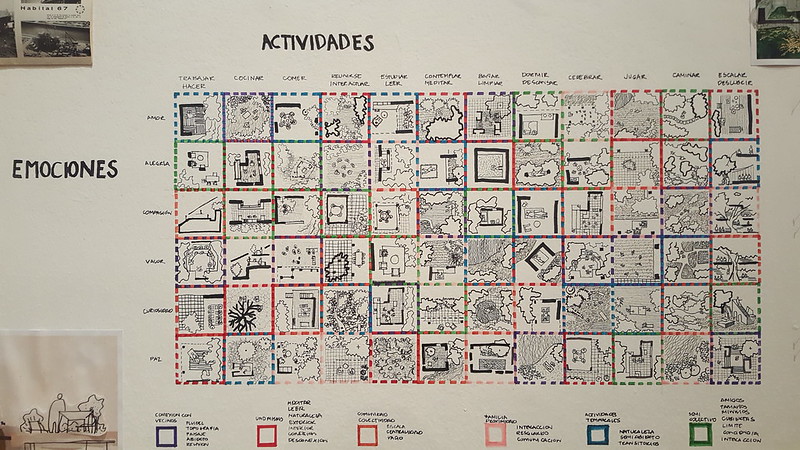 Habitat 67
ACTIVIDADES
TRABAJAR
HACER
COCINAR
COMER
REUNIRSE
INTERACTUAR
ESTUDIAR
LEER
CONTEMPLAR
MEDITAR
BAÑAR
LIMPIAR
DORMIR
DESCANSAR
CELEBRAR
JUGAR
CAMINAR
ESCALAR
EMOCIONES
AMOR
ALEGRIA
COMPASIÓN
VALOR
CURIOSIDAD
PAZ
CONEXION CON
VECINOS
TOPOGRAFIA
PAISAJE
ABIERTO
REUNION
UNO MISMO
MEDITAR
LEER
NATURALEZA
EXTERIOR
INTERIOR
CONEXION
DESCONEXION
COMUNIDAD
COLECTIVIDAD
ESCALA
CENTRALIDAD
VACIO
FAMILIA
PROXIMIDAD
INTERACCION
RESGUARDO
COMUNICACION
ACTIVIDADES
TEMPORALES
NATURALEZA
SEMI ABIERTO
TRANSITORIOS
SEMI
COLECTIVO
AMIGOS
TAMAÑOS
LIMITE
INTERACCION